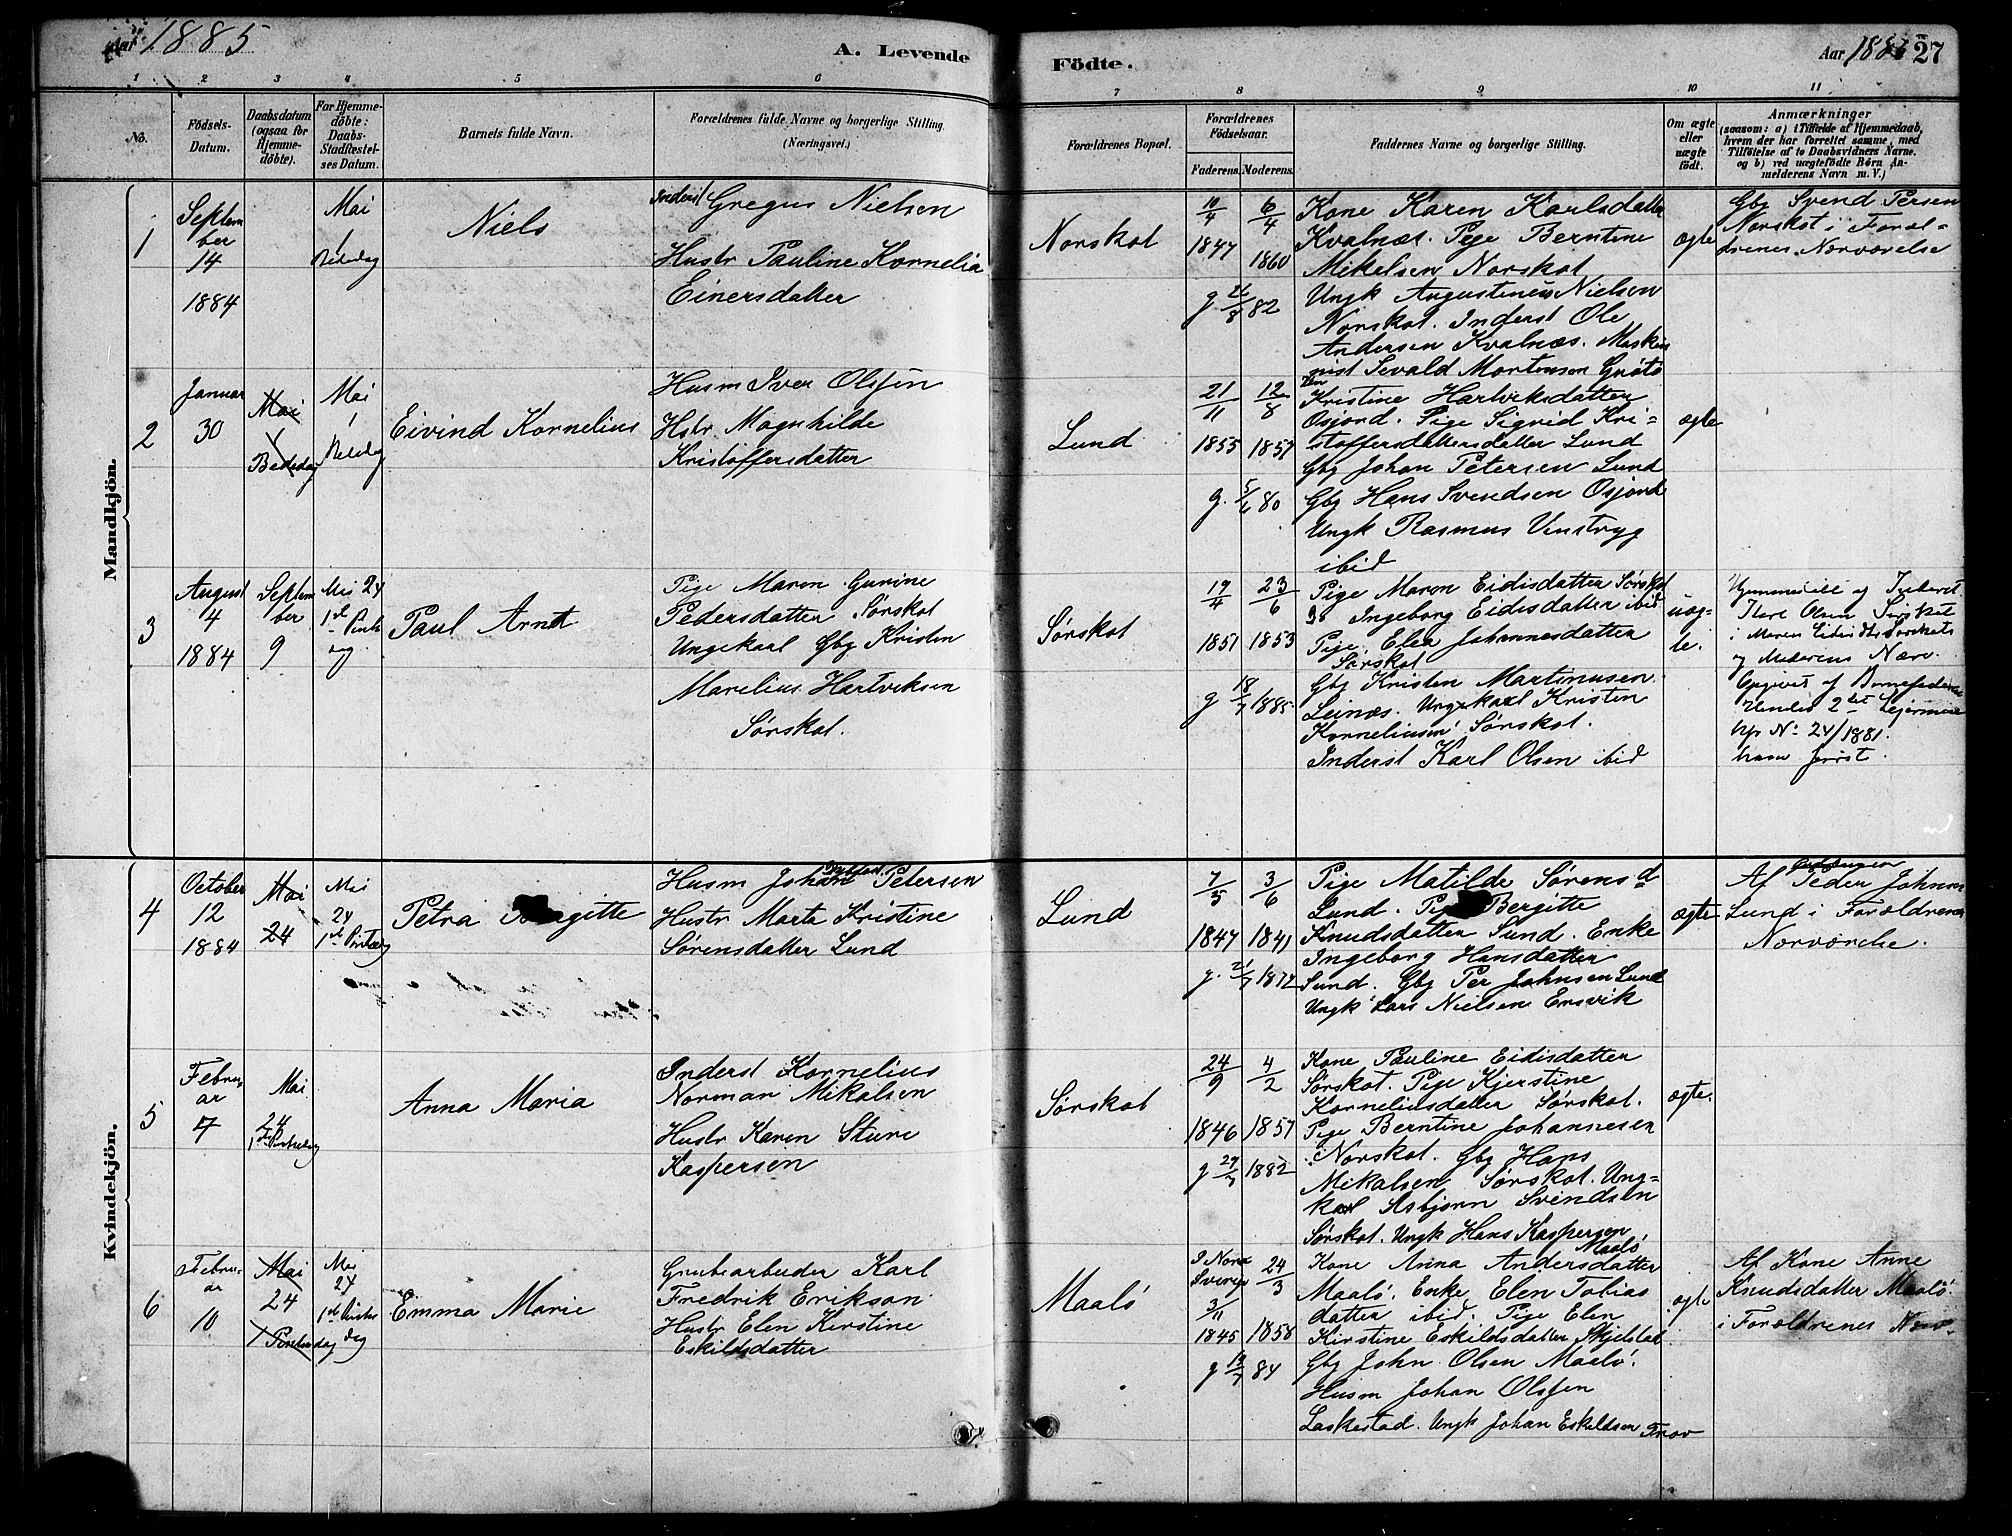 Aar 1885
A. Levende
Födte.
Aar 188
27
1 2 3 4 5 6 7 8 9 10 11
No.
Födsels-
Datum.
Daabsdatum
(ogsaa for
Hjemme-
døbte).
For Hjemme-
døbte:
Daabs-
Stadfæstel-
ses Datum.
Barnets fulde Navn.
Forældrenes fulde Navne og borgerlige Stilling.
(Næringsvei.)
Forældrenes Bopæl.
Forældrenes
Födselsaar.
Faderens. Moderens.
Faddernes Navne og borgerlige Stilling.
Om ægte
eller
uægte
födt.
Anmærkninger
(saasom: a) i Tilfælde af Hjemmedaab,
hvem der har forrettet samme, med
Tilföielse af to Daabsvidners Navne.
og b) ved uægtefödte Börn An-
melderens Navn m. V.)
Mandkjön.
1
Septem
ber
14
1884
Mai
1
Bededag
Niels
Inderst Gregus Nielsen
Hustr Pauline Kornelia
Einersdatter
Norskot
10/4 6/4
1847 1860
g 26/8 82
Kone Karen Karlsdatter
Kvalnæs. Pige Berntine
Mikelsen Norskot
Ungk Augustinus Nielsen
Norskot. Inderst Ole
Andersen Kvalnæs. Maski
nist Sevald Mortensen Grøtø
ægte
Gbg Svend Persen
Norskot i Foræl-
drenes Nærværelse
2
Januar
30
Mai
1
Bededag
Mai
1
Bededag
Eivind Kornelius
Husm Iver Olssen
Hstr Magnhilde
Kristoffersdatter
Lund
21/11 12/8
1855 1857
g. 5/6 80
Kristine Hartviksdatter
Osjord. Pige Sigrid Kri-
stoffersdattersdatter Lund
Gbg Johan Petersen Lund
Gbg Hans Svendsen Osjord
Ungk Rasmus Vinstryg
ibid
ægte
3
August
4
1884
Septem
ber
9
Mai 24
1ste Pints
dag.
Paul Arndt
Pige Maren Gurine
Pedersdatter Sørskot
Ungekaal Gbg Kristen
Marelius Hartviksen
Sørskot.
Sørskot
19/4 23/6
1851 1853
g 18/7 1885
Pige Maren Eidisdatter Sørskot
Do Ingeborg Eidisdatter ibid
Pige. Elen Johannesdatter
Sørskot
Gbg Kristen Martinusen
Leinæs. Ungekarl Kristen
Korneliusen Sørskot.
Inderst Karl Olsen ibid
uæg-
te.
Tore Olsen Sørskot
i Maren Eidisdtr Sørskots
og Moderens Nærv.
Opgivet af Barnefaderen
Hendes 2det Leiermaal
No 24/1881.
hans første.
Kvindekjön.
4
October
12
1884
Mai
24
Mai
24
1ste Pintsdag
Petra Birgitte
Husm Johan Petersen
Hustr Marta Kristine
Sørensdatter Lund
Lund
7/5 3/6
1847 1841
g. 21/7 1872
Pige Matilde Sørensd
Lund. Pige Bergitte
Knudsdatter Sund. Enke
Ingeborg Hansdatter
Sund. Gbg Per Johnsen Lund
Ungk Lars Nielsen Ensvik
ægte
Af Peder Johnsen
Lund i Forældrenes
Nærværelse.
5
Febru-
ar
7
Mai
24
1ste Pintsedag
Anna Maria
Inderst Kornelius
Norman Mikalsen
Hustr Karen Sture
Kaspersen
Sørskot
24/9 4/2
1846 1857
g 29/7 1882
Kone Pauline Eidisdatter
Sørskot. Pige Kjerstine
Korneliusdatter Sørskot.
Pige Berntine Johannesen
Norskot. Gbg Hans
Mikalsen Sørskot. Ung-
karl Asbjørn Svendsen
Sørskot. Ungk Hans Kaspersen
Maalø
ægte.
6
Febru-
ar
10
Mai
24
1 Pintsedag
Mai
24
1ste Pintse
dag
Emma Marie
Grubearbeider Karl
Fredrik Erikson
Hustr Elen Kirstine
Eskildsdatter
Maalø
I Nora
Sverige 24/3
3/11
1845 1858
g 13/7 84
Kone Anna Andersdatter
Maalø. Enke Elen Tobias
datter ibid. Pige Elen
Kirstine Eskildsdatter Skjelstad
Gbg John Olsen Maalø.
Husm Johan Olssen
Laskestad. Ungk Johan Eskildsen
ægte
Af Kone Anne
Knudsdatter Maalø
i Forældrenes Nærv.